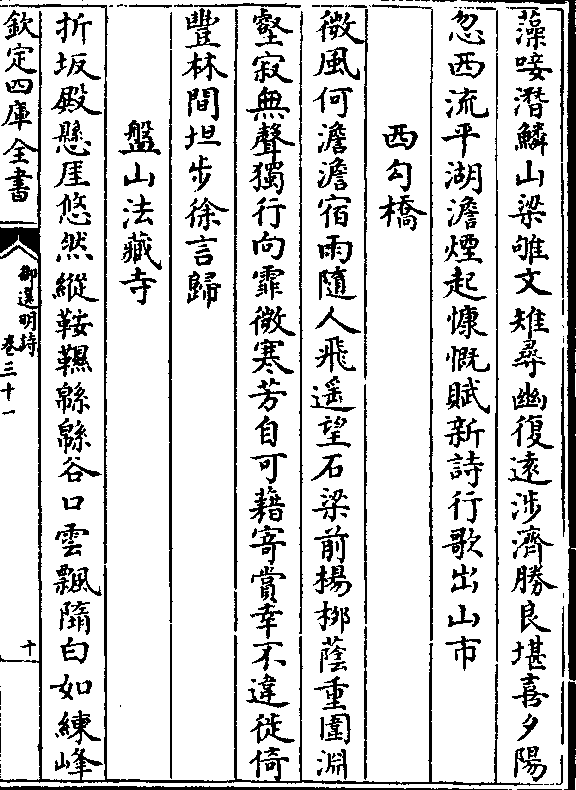 藻唼潛鱗山梁雊文雉尋幽復遠涉濟勝良堪喜夕陽
忽西流平湖澹煙起慷慨賦新詩行歌出山市
西勾橋
微風何澹澹宿雨隨人飛遥望石梁前楊栁蔭重圍淵
壑寂無聲獨行向霏微寒芳自可藉寄賞幸不違徙倚
豐林間坦步徐言歸
盤山法藏寺
折坂殿懸厓悠然縱鞍韉緜緜谷口雲飄隋白如練峰
欽定四庫全書
御選明詩
卷三十一
十